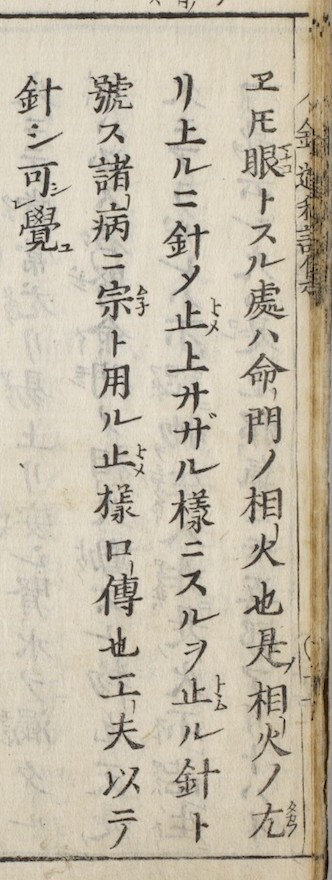 ヱ𪜈眼トスル處ハ命門ノ相火也是相火ノ尢
リ上ルニ針メ止上サザル樣ニスルヲ止ル針ト
號ス諸病ニ宗ト用ル止樣口傳也工夫以テ
針シ可覺